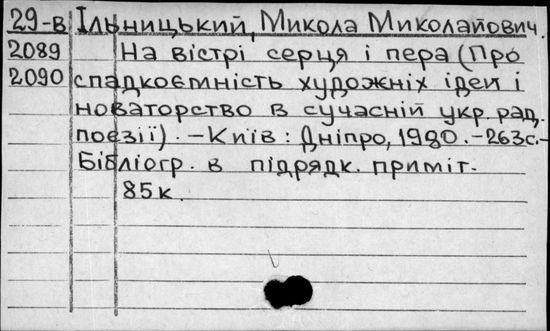 29-в Ільницький, Микола Миколайович.
2089 На вістрі серця і пера (Про
2090 спадкоємність художніх ідей і
новаторство в сучасній укр. рад.
поезії). – Київ : Дніпро, 1980. – 263с. –
Бібліогр. в підрядк. приміт.
85к.